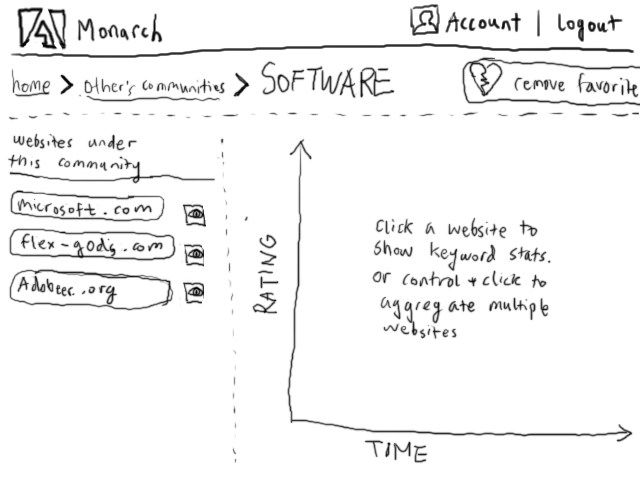 Monarch
Account | Logout
home > Other's communities > SOFTWARE
remove favorite
websites under
this community
microsoft.com
flex-gods.com
Adobeec.org
RATING
Click a website to
show keyword stats.
or control + click to
aggregate multiple
websites
TIME